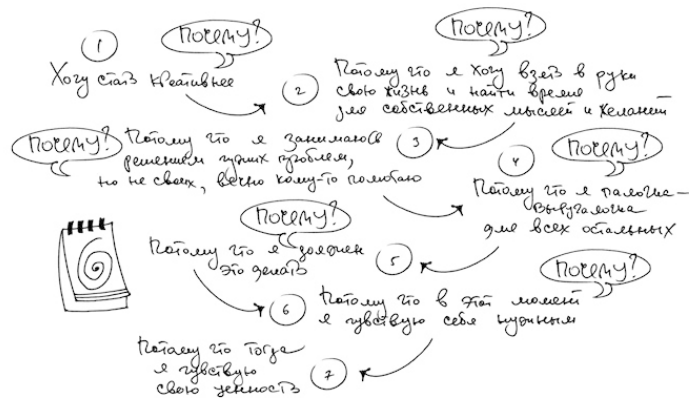 1
Почему?
Хочу стать креативнее
Почему?
2
Потому что я хочу взять в руки
свою жизнь и найти время
для собственных мыслей и желаний
Почему?
3
Потому что я занимаюсь
решением чужих проблем,
но не своих, вечно кому-то помогаю
4
Почему?
Потому что я палочка-
выручалочка
для всех остальных
Почему?
5
Потому что я должен
это делать
Почему?
6
Потому что в этот момент
я чувствую себя нужным
7
Потому что тогда
я чувствую
свою ценность